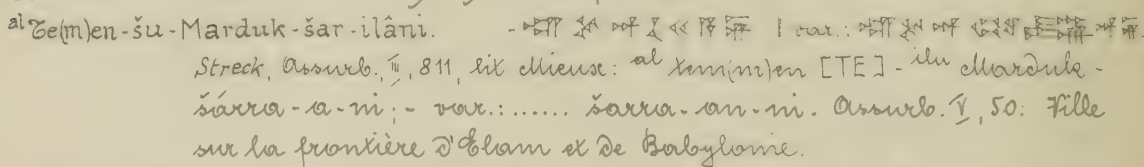 al Te(m)en-šu-Marduk-šar-ilâni. - | var.:
Streck, Assurb., III, 811, lit Mieux: al tem(m)en [TE]-ilu Marduk-
šárra-a-ni; - var.:...... šarra-an-ni. Assurb. V, 50: Ville
sur la frontière d'Elam et de Babylonie.